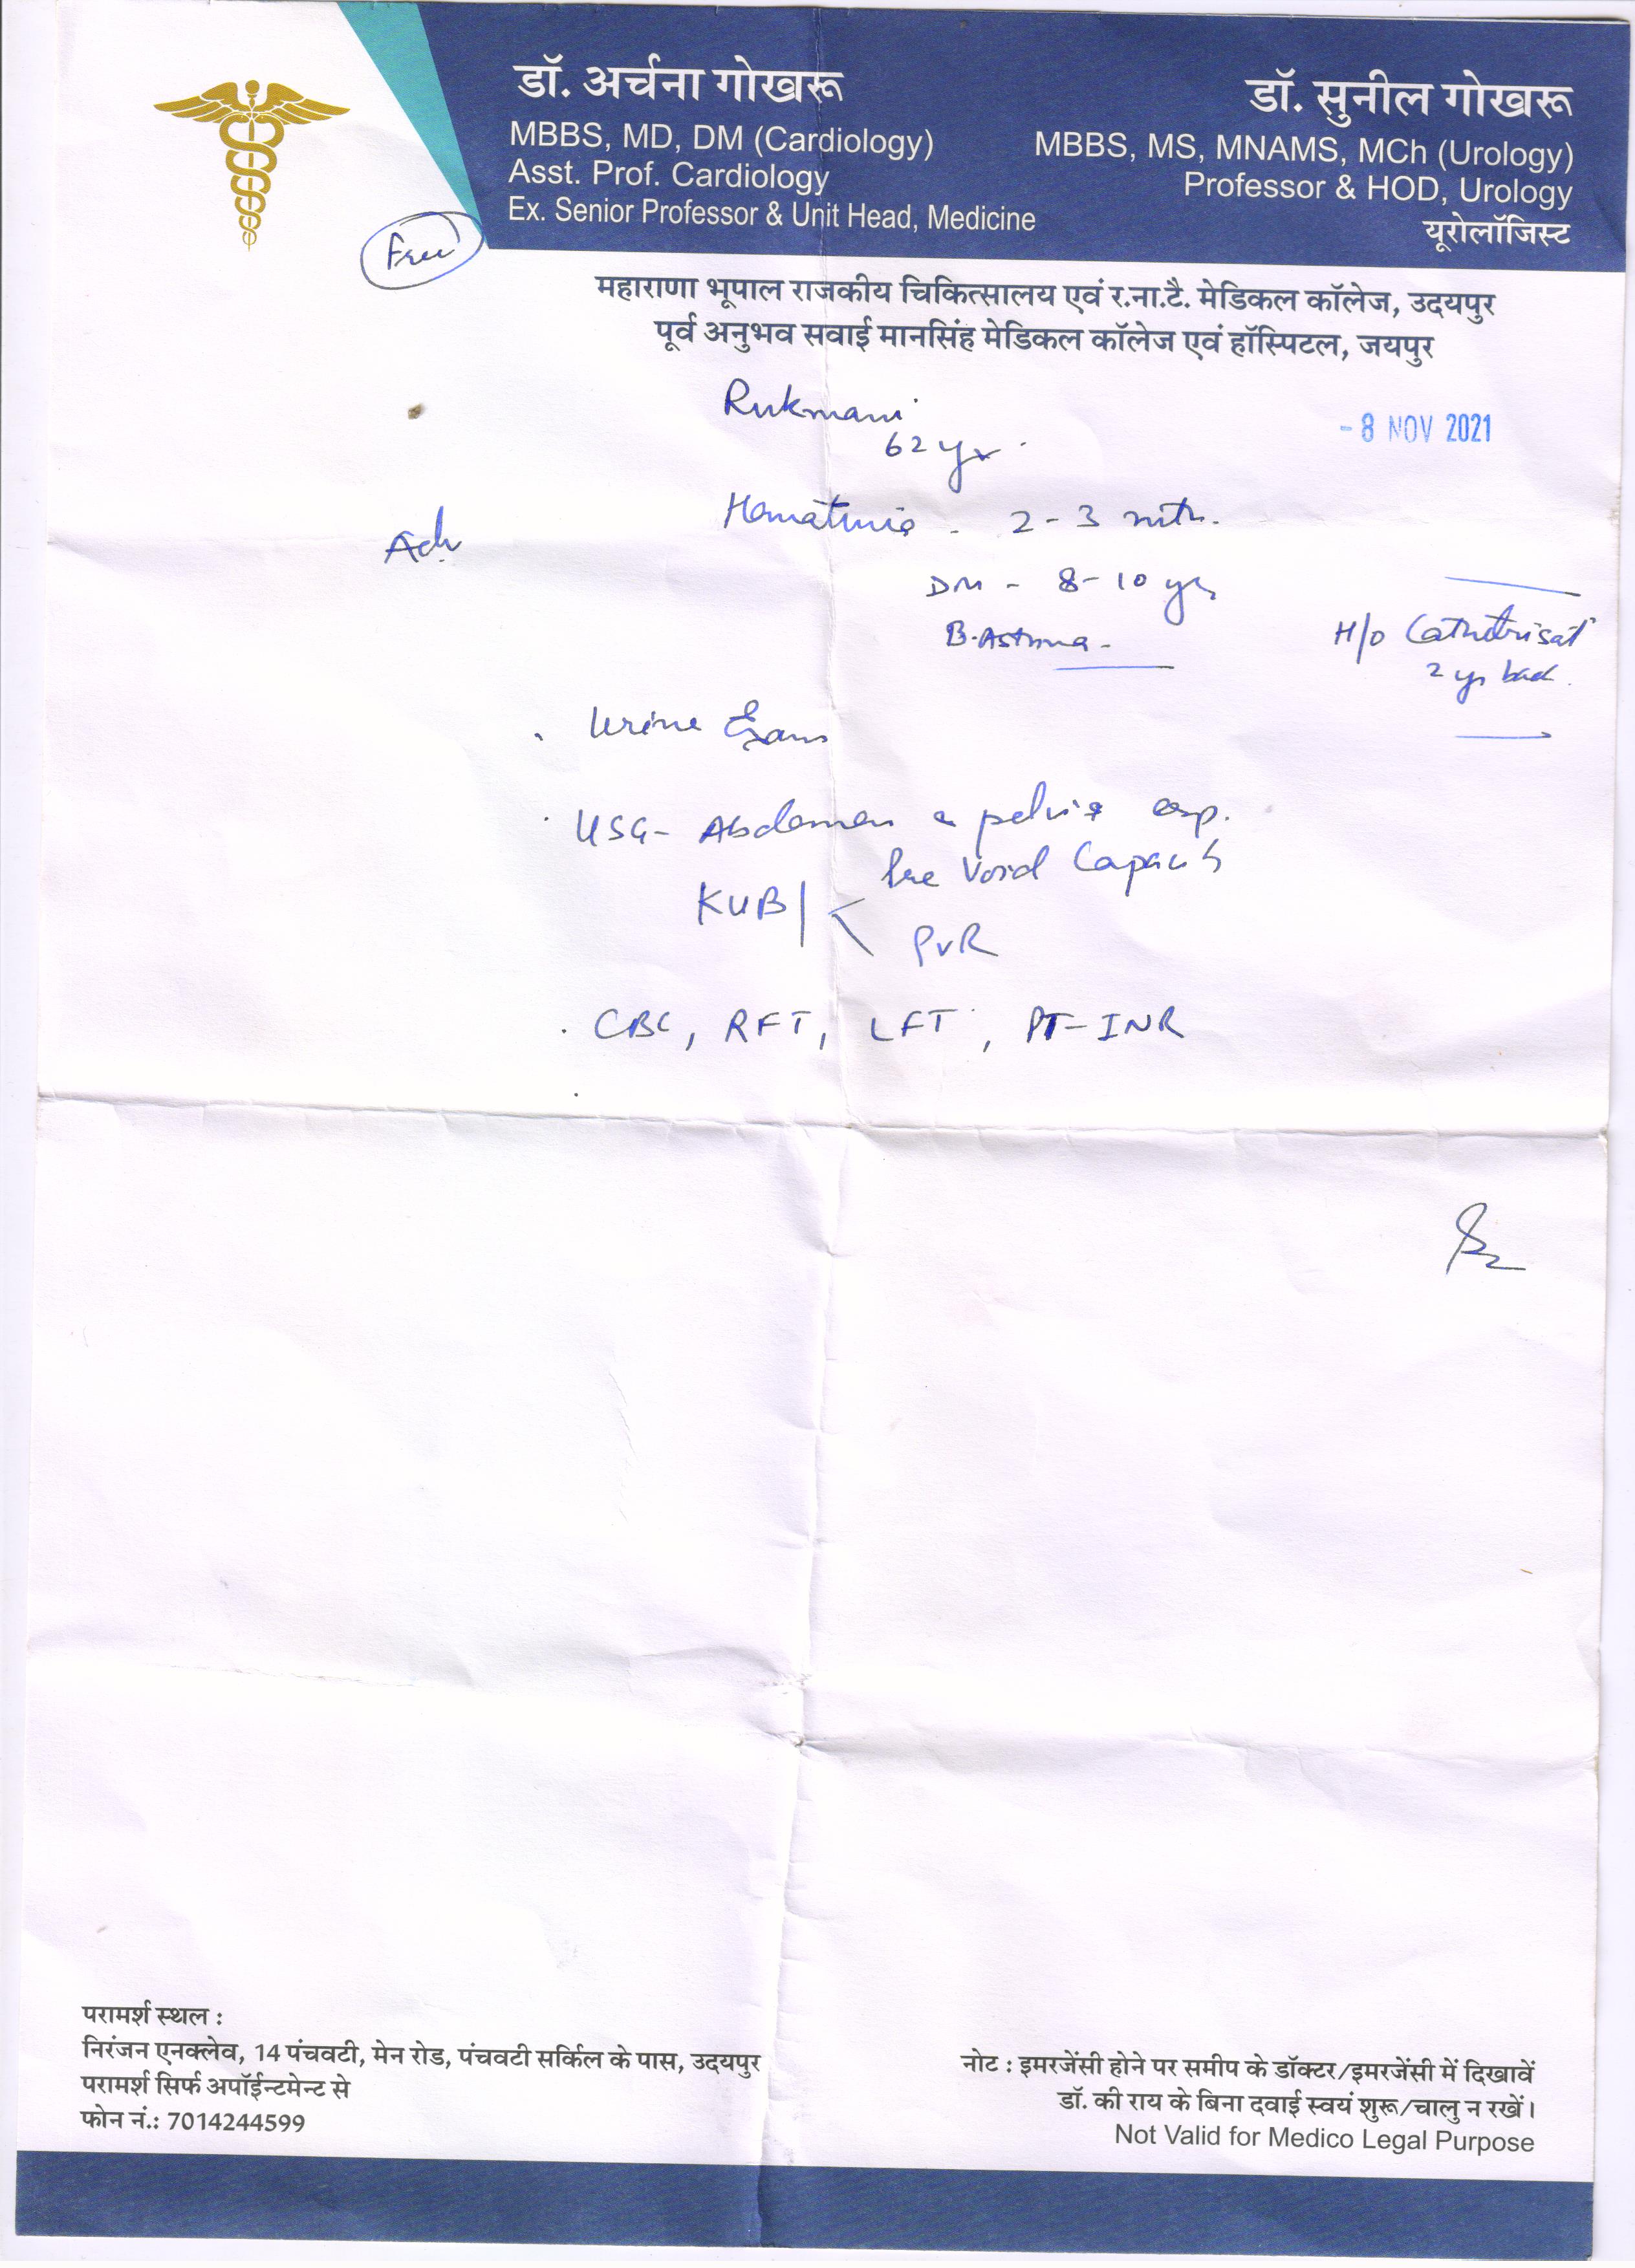 डॉ. अर्चना गोखरू
MBBS, MD, DM (Cardiology)
Asst. Prof. Cardiology
Ex. Senior Professor & Unit Head, Medicine
डॉ. सुनील गोखरू
MBBS, MS, MNAMS, MCh (Urology)
Professor & HOD, Urology
यूरोलॉजिस्ट
Free
महाराणा भूपाल राजकीय चिकित्सालय एवं र.ना.टै. मेडिकल कॉलेज, उदयपुर
पूर्व अनुभव सवाई मानसिंह मेडिकल कॉलेज एवं हॉस्पिटल, जयपुर
Rukmani
62 yr
- 8 NOV 2021
Hematuria - 2-3 mth.
Adv
DM - 8-10 yrs
B.Asthma -
H/o Catheterisat
2 yr back.
Urine Exam
USG- Abdomen & pelvis esp.
Pre Void Capacity
KUB
PVR
CBC, RFT, LFT, PT-INR
परामर्श स्थल :
निरंजन एनक्लेव, 14 पंचवटी, मेन रोड, पंचवटी सर्किल के पास, उदयपुर
परामर्श सिर्फ अपॉईन्टमेन्ट से
फोन नं.: 7014244599
नोट : इमरजेंसी होने पर समीप के डॉक्टर/इमरजेंसी में दिखावें
डॉ. की राय के बिना दवाई स्वयं शुरू/चालु न रखें।
Not Valid for Medico Legal Purpose